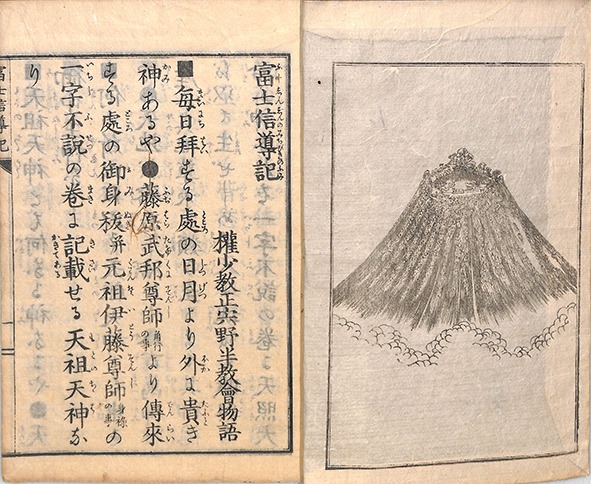 富士信導記
權少教正宍野半教會物語
■毎日拜する處の日月より外に貴き
神あるや●藤原武邦尊師角行の事より傳來
する處の御身秡并元祖伊藤尊師身祿の事の
一字不說の卷に記載せる天祖天神な
り
富士信導記